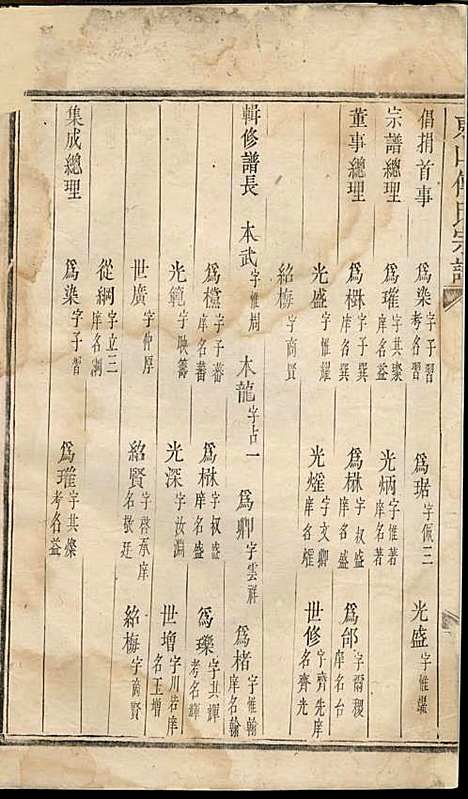 倡捐首事 爲染字子習考名習 爲琚字佩三 光盛字惟耀
宗譜總理 爲璀字其燦庠名益 光炳字惟著庠名著
董事總理 爲樹字子撰庠名撰 爲楙字叔盛庠名盛 爲邰字爾稷庠名台
光盛字惟耀 光燿字文卿庠名燿 世修字齊先庠名齊光
紹梅字商賢
輯修譜長 本武字惟周 木龍字占一 爲卿字雲祥 爲楮字惟翰庠名翰
爲欓字子蕃庠名蕃 爲楙字叔盛庠名盛 爲瓅字其輝考名輝
光範字映籌 光深字汝淵 世增字川岩庠名玉增
世廣字仲厚 紹賢字啓承庠名敬廷 紹梅字商賢
從綱字立三庠名澗
集成總理 爲染字子習 爲璀字其燦考名益